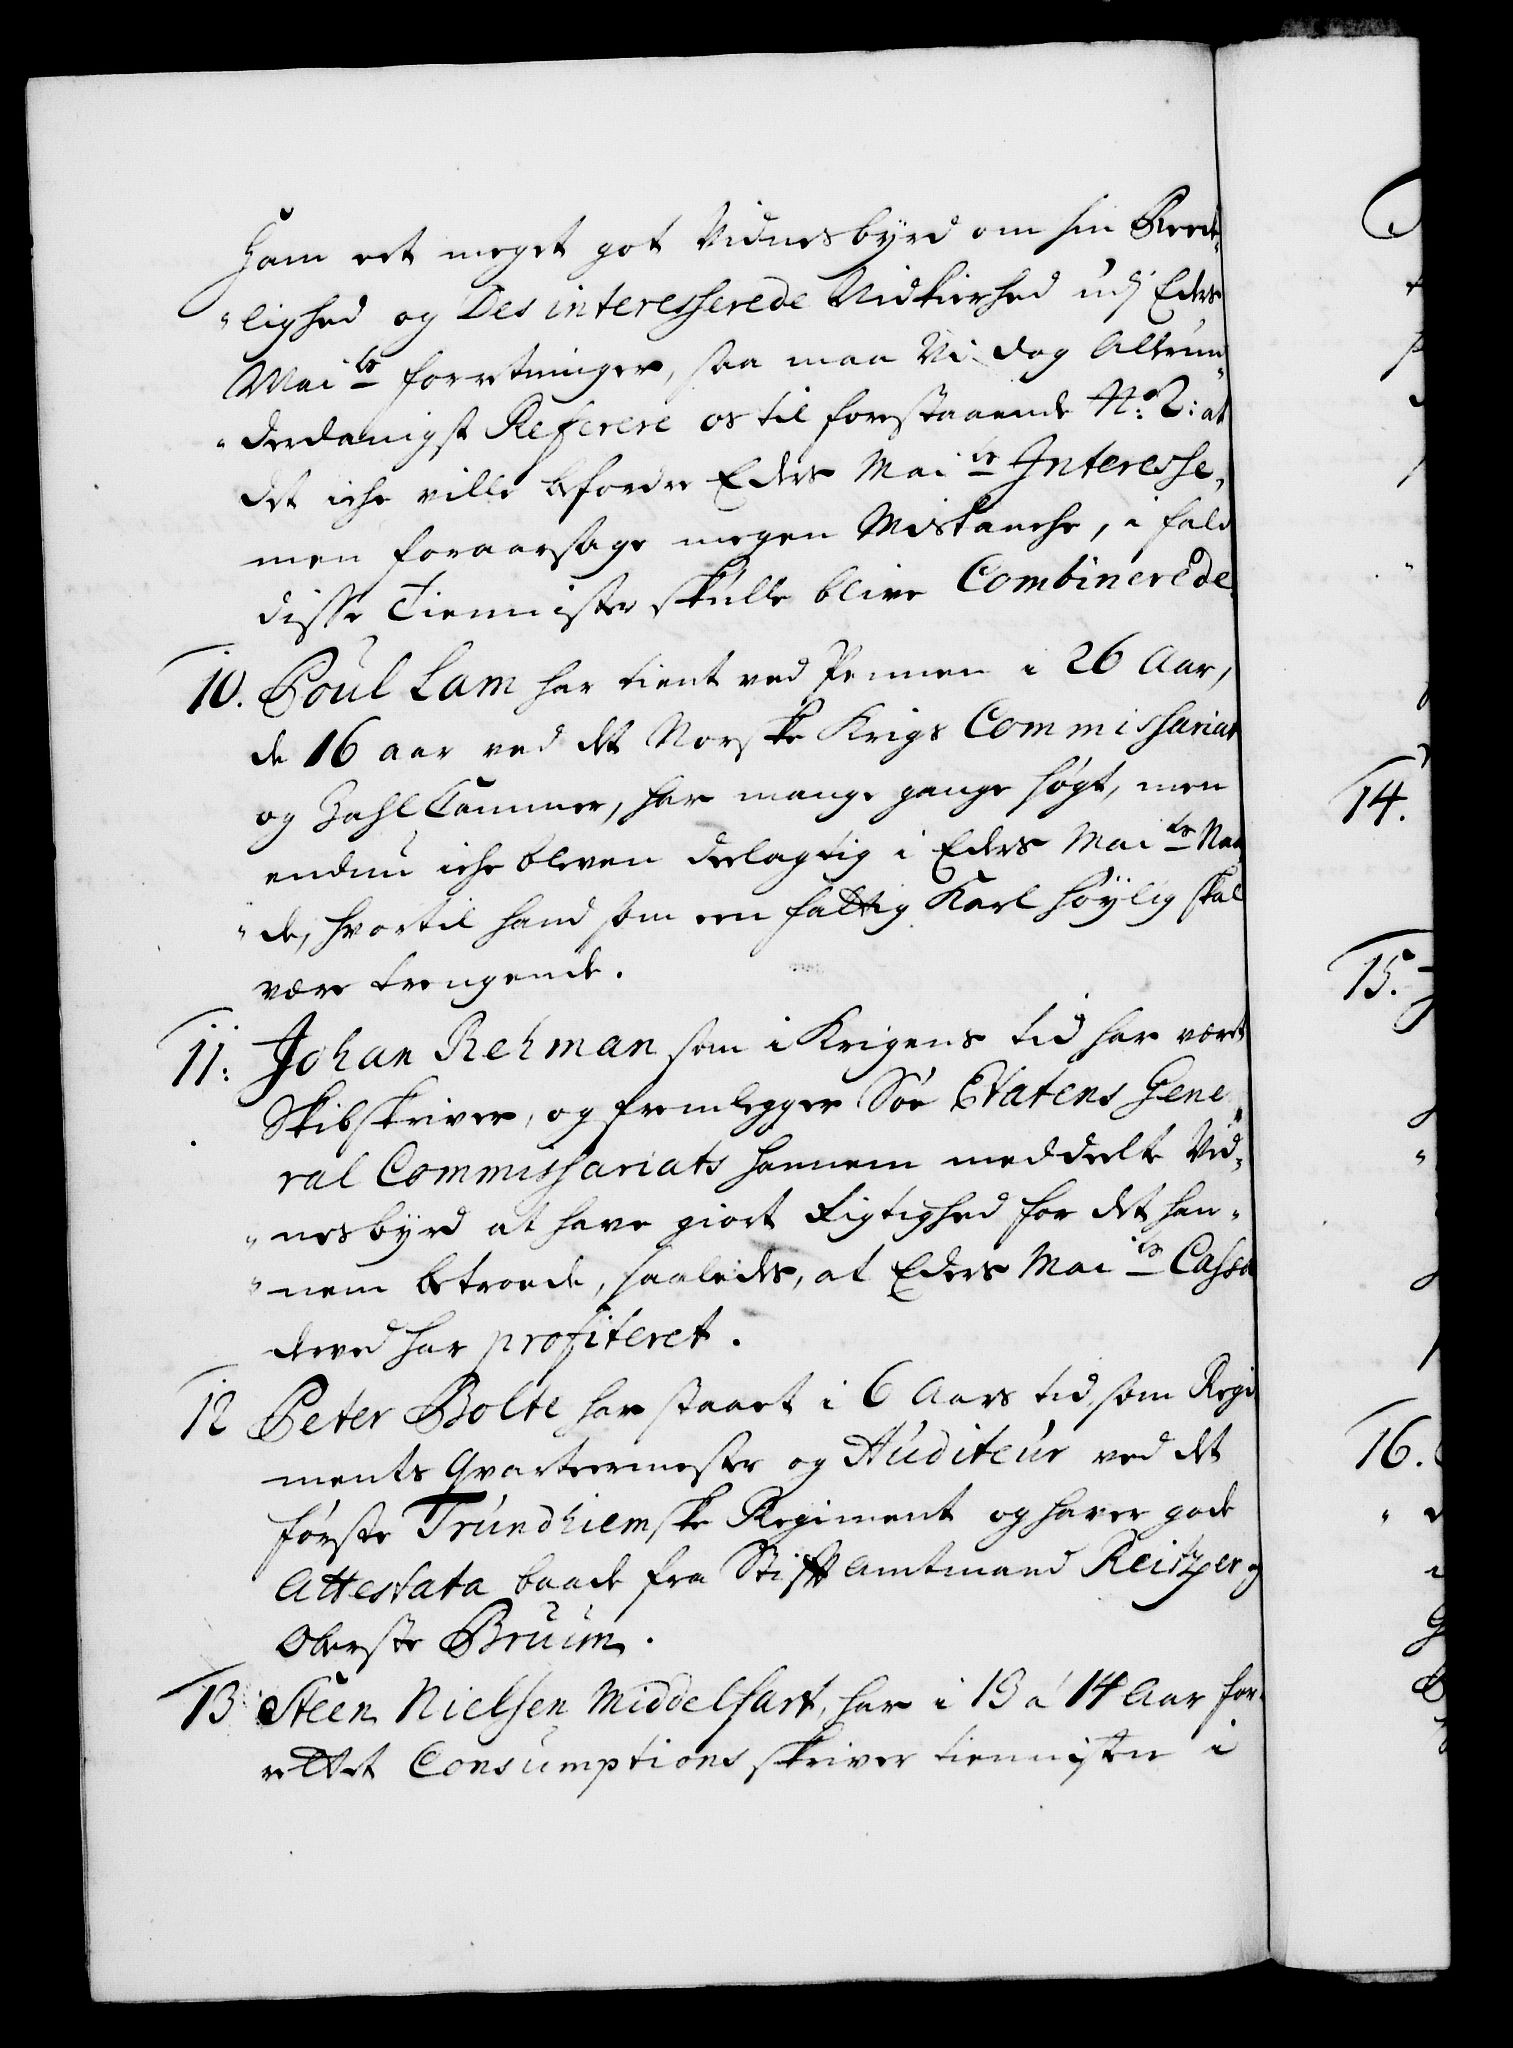 ham eet meget got Vidnesbyrd om sin Reed-
"lighed og Desinteresserede Nidkierhed udj Eders
Mai.ts forretninger, saa maa Vi dog Allerun"
"derdanigst Referere os til forestaaende No. 2: at
det iche ville befordre Eders Mai.ts Interesse,
men foraarsage megen Mistanche, i fald
disse Tiennister skulle blive Combinerede.
10. Poul Lam har tient ved Pennen i 26 Aar,
de 16 aar ved det Norske Krigs Commissariat
og Zahl Cammer, har mange gange søgt, men
endnu iche bleven deelagtig i Eders Mai.ts Naa
"de, hvortil hand som een fattig Karl høylig skal
være trengende.
11: Johan Rehman som i Krigens tid har vært
Skibskriver, og fremlegger Søe Etatens Gene"
ral Commissariats hannem meddeelte Vid-
"nesbyrd at have giort Rigtighed for det han"
"nem betroede, saaledes, at Eders Mai.ts Cassa
derved har profiteret.
12 Peter Bolte har staaet i 6 Aars tid som Regi
ments Qvarteermester og Auditeur ved det
første Trundhiemske Regiment og haver gode
Attestata baade fra Stifft Amtmand Reitzer og
Oberste Bruun.
13 Steen Nielsen Middelfart, har i 13 a 14 Aar for-
rettet Consumptions skriver tiennisten i
14.
15.
16.